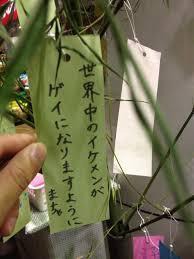 世界中のイケメンが
ゲイになりますように